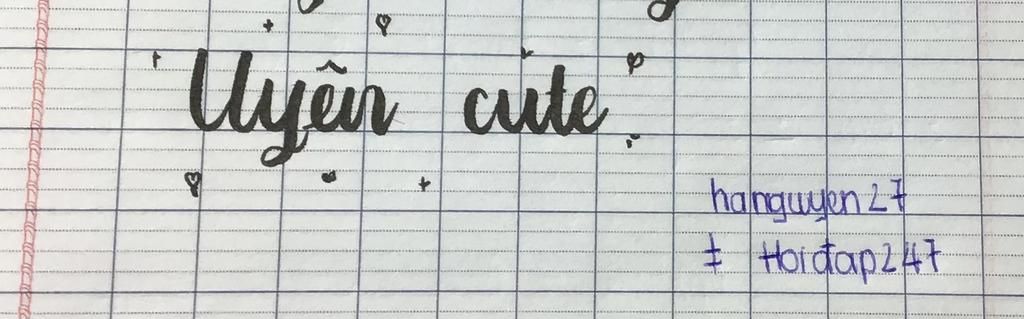 Uyên cute
hanguyen27
# Hoiđap247